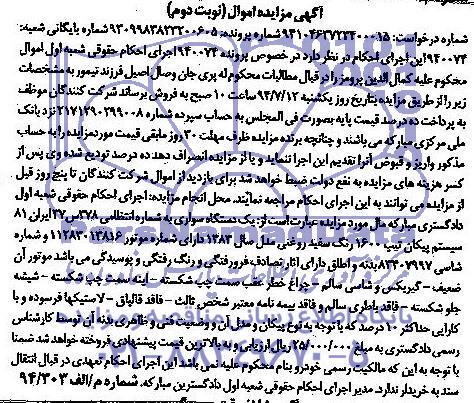 آگهی مزایده اموال (نوبت دوم)
شماره درخواست: ۹۴۱۰۴۶۳۷۲۳۴۰۰۰۱۵ شماره پرونده: ۹۳۰۹۹۸۳۸۲۳۲۰۰۶۰۵ شماره بایگانی شعبه:
۹۴۰۰۷۴ این اجرای احکام در نظر دارد در خصوص پرونده ۹۴۰۰۷۴ اجرای احکام حقوقی شعبه اول اموال
محکوم علیه کمال الدین پرومز را در قبال مطالبات محکوم له پری جان وصال اصیل فرزند تیمور به مشخصات
زیر را از طریق مزایده بتاریخ روز یکشنبه ۹۴/۷/۱۲ ساعت ۱۰ صبح به فروش برساند شرکت کنندگان موظف
به پرداخت ده درصد قیمت پایه بصورت فی المجلس به حساب سپرده شماره ۲۱۷۱۲۹۰۲۹۹۰۰۸ نزد بانک
ملی مرکزی مبارکه می باشند و چنانچه برنده مزایده ظرف مهلت ۳۰ روز مابقی قیمت مورد مزایده را به حساب
مذکور واریز و قبوض آنرا تقدیم این اجرا ننماید و یا از مزایده انصراف دهد ده درصد تودیع شده وی پس از
کسر هزینه های مزایده به نفع دولت ضبط خواهد شد برای بازدید از اموال شرکت کنندگان تا پنج روز قبل
از مزایده می توانند به این اجرای احکام مراجعه نمایند. محل انجام مزایده: اجرای احکام حقوقی شعبه اول
دادگستری مبارکه مال مورد مزایده عبارت است از: یک دستگاه سواری به شماره انتظامی ۳۷۸س۲۷ ایران ۸۱
سیستم پیکان تیپ ۱۶۰۰ رنگ سفید روغنی مدل سال ۱۳۸۳ دارای شماره موتور ۱۱۲۸۳۰۱۳۸۱۶ و شماره
شاسی ۸۳۳۰۷۹۹۷ بدنه و اطاق دارای آثار تصادف، فرورفتگی و رنگ رفتگی و پوسیدگی می باشد موتور آن
ضعیف - گیربکس و شاسی سالم - چراغ خطر عقب سمت چپ شکسته - آینه سمت چپ شکسته - شیشه
جلو شکسته - فاقد باطری سالم و فاقد بیمه نامه معتبر شخص ثالث - فاقد قالپاق - لاستیکها فرسوده و با
کارایی حداکثر ۱۰ درصد که با توجه به نوع پیکان و مدل آن و وضعیت فنی و ظاهری بدنه آن توسط کارشناس
رسمی دادگستری به مبلغ ۲۵/۰۰۰/۰۰۰ ریال ارزیابی و به بالاترین قیمت پیشنهادی فروخته خواهد شد ضمنا
با توجه به این که مالکیت رسمی خودرو بنام محکوم علیه نمی باشد این اجرای احکام تعهدی در قبال انتقال
سند به خریدار ندارد. مدیر اجرای احکام حقوقی شعبه اول دادگستری مبارکه. شماره م/الف ۹۴/۳۰۳